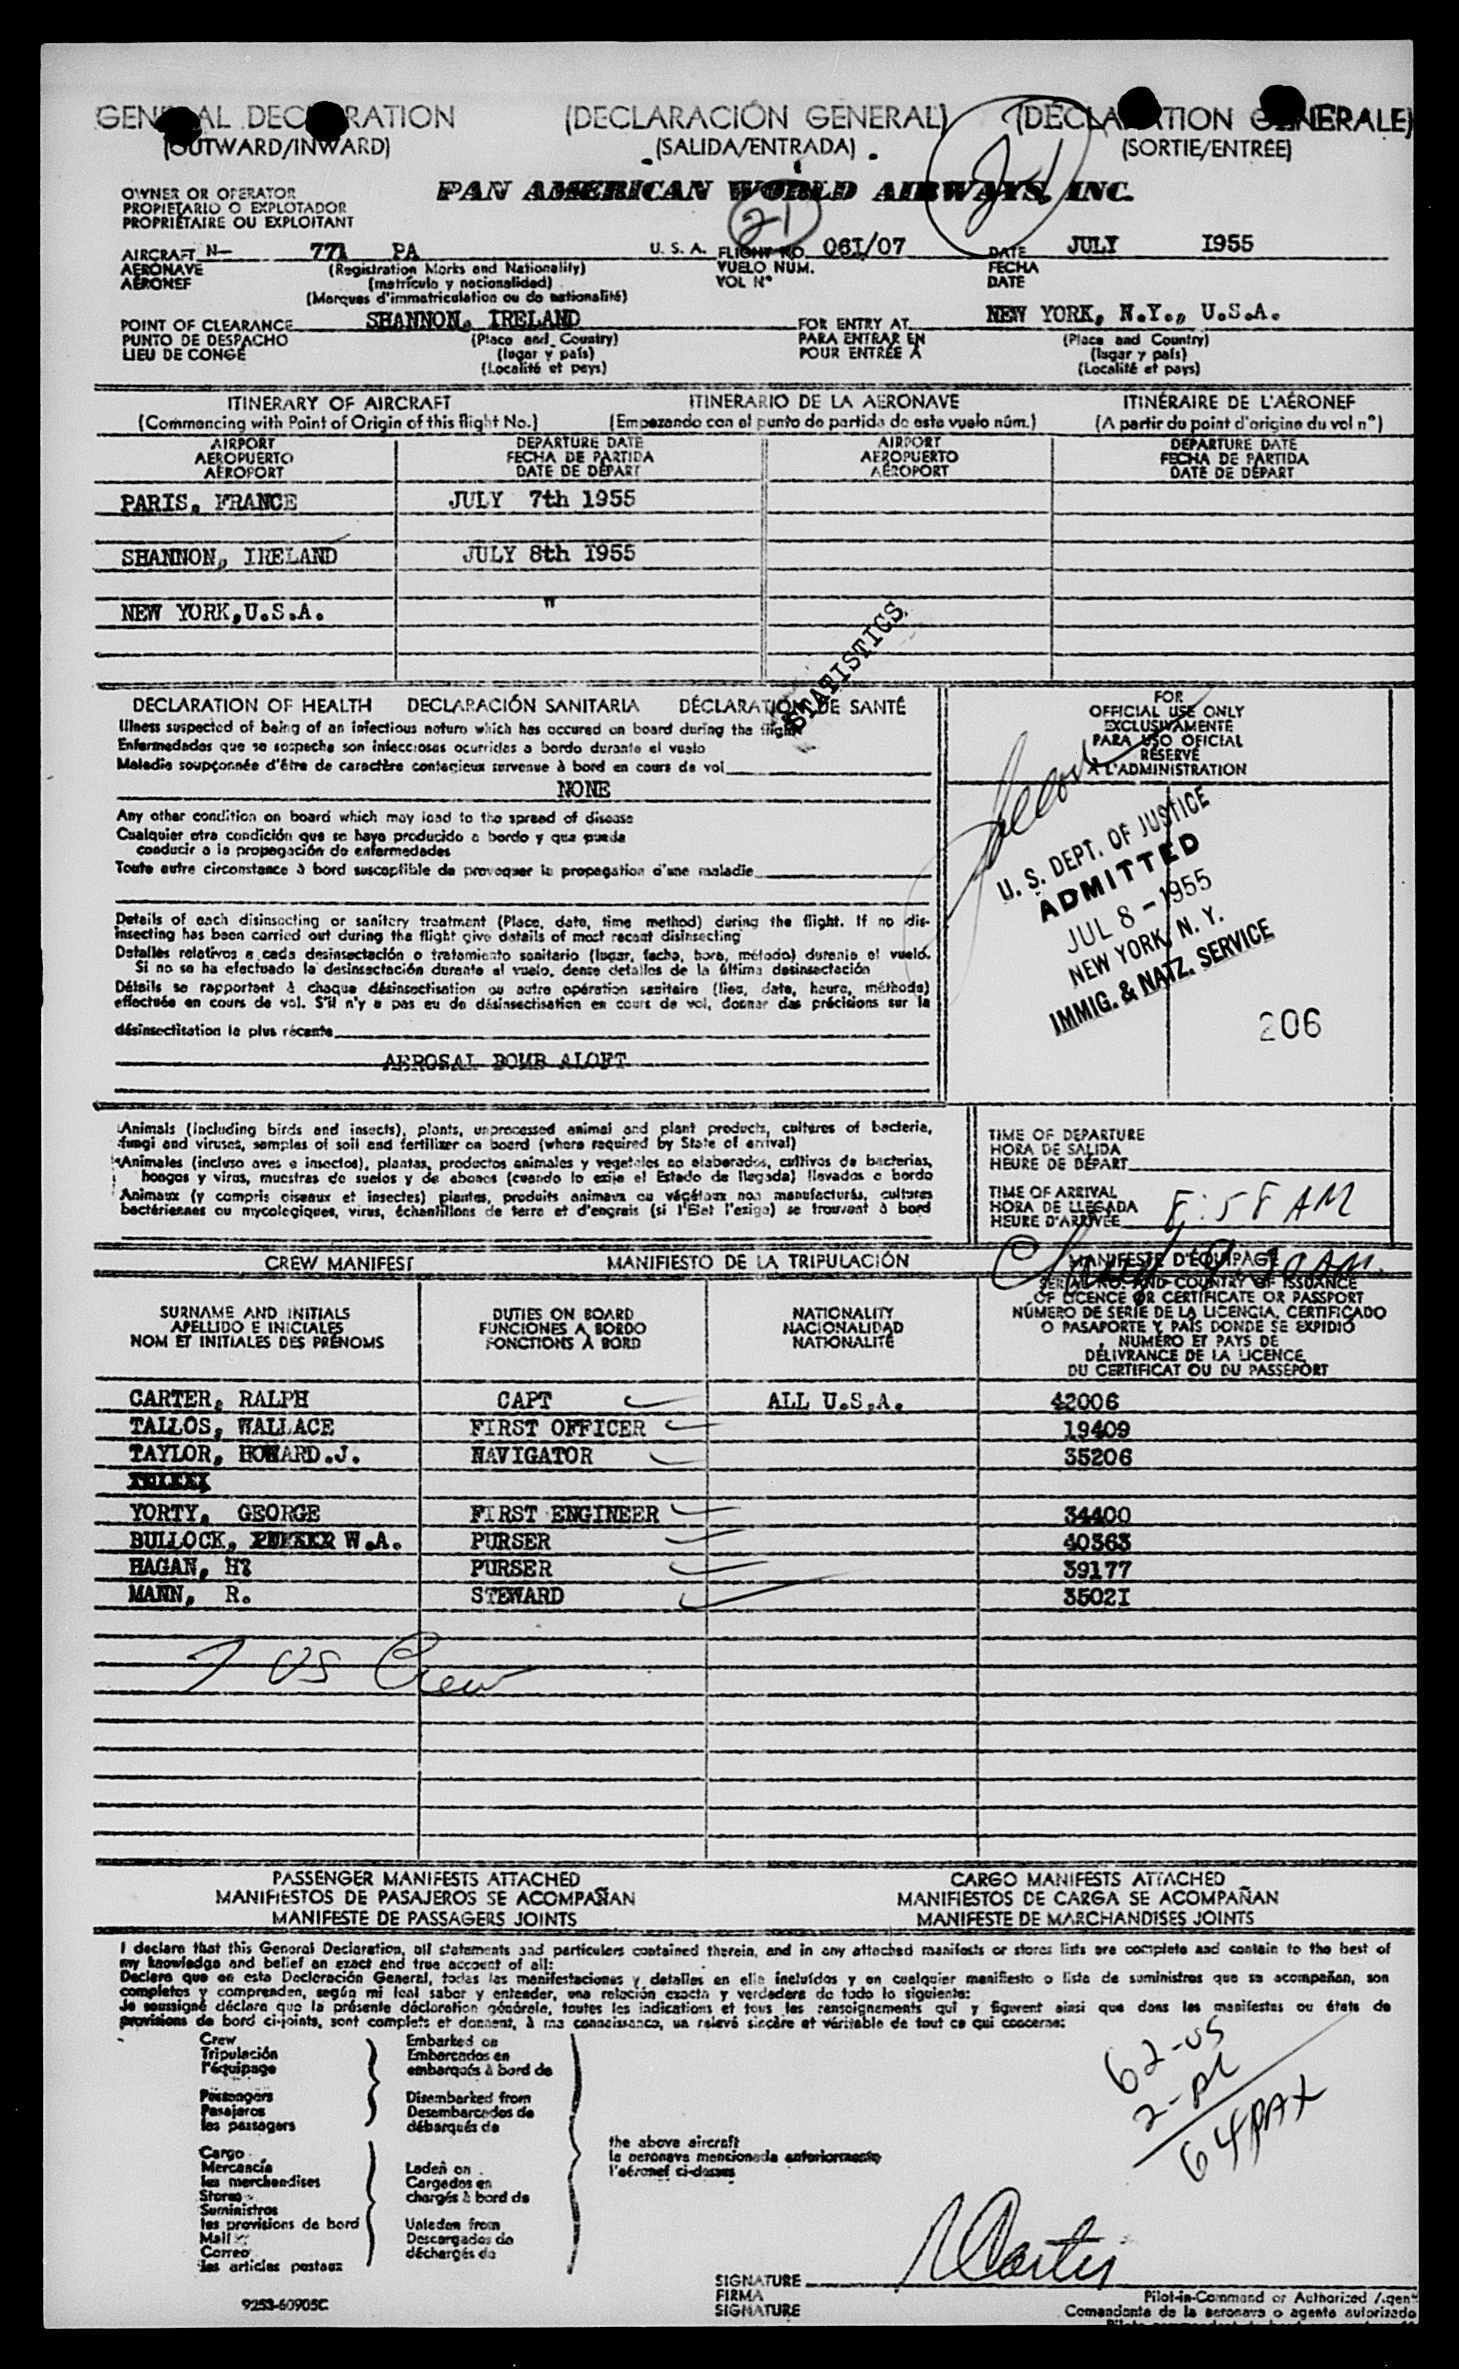 GENERAL DECLARATION (DECLARACIÓN GENERAL) (DÉCLARATION GÉNÉRALE)
(OUTWARD/INWARD) (SALIDA/ENTRADA) (SORTIE/ENTRÉE)
OWNER OR OPERATOR
PROPIETARIO O EXPLOTADOR
PROPRIÉTAIRE OU EXPLOITANT
PAN AMERICAN WORLD AIRWAYS, INC.
21
21
AIRCRAFT N- 771 PA U. S. A. FLIGHT NO. 06I/07 DATE JULY I955
AERONAVE (Registration Marks and Nationality) VUELO NUM. FECHA
AÉRONEF (matrícula y nacionalidad) VOL Nº DATE
(Marques d'immatriculation ou de nationalité)
POINT OF CLEARANCE SHANNON, IRELAND FOR ENTRY AT NEW YORK, N.Y., U.S.A.
PUNTO DE DESPACHO (Place and Country) PARA ENTRAR EN (Place and Country)
LIEU DE CONGÉ (lugar y país) POUR ENTRÉE À (lugar y país)
(Localité et pays) (Localité et pays)
ITINERARY OF AIRCRAFT ITINERARIO DE LA AERONAVE ITINÉRAIRE DE L'AÉRONEF
(Commencing with Point of Origin of this flight No.) (Empezando con el punto de partida de este vuelo núm.) (A partir du point d'origine du vol nº)
AIRPORT DEPARTURE DATE AIRPORT DEPARTURE DATE
AEROPUERTO FECHA DE PARTIDA AEROPUERTO FECHA DE PARTIDA
AÉROPORT DATE DE DÉPART AÉROPORT DATE DE DÉPART
PARIS, FRANCE JULY 7th 1955
SHANNON, IRELAND JULY 8th I955
NEW YORK,U.S.A. "
STATISTICS
DECLARATION OF HEALTH DECLARACIÓN SANITARIA DÉCLARATION DE SANTÉ
Illness suspected of being of an infectious nature which has occured on board during the flight
Enfermedades que se sospecha son infecciosas ocurridas a bordo durante el vuelo
Maladie soupçonnée d'être de caractère contagieux survenue à bord en cours de vol
NONE
Any other condition on board which may lead to the spread of disease
Cualquier otra condición que se haya producido a bordo y que pueda
conducir a la propagación de enfermedades
Toute autre circonstance à bord susceptible de provoquer la propagation d'une maladie
Details of each disinsecting or sanitary treatment (Place, date, time method) during the flight. If no dis-
insecting has been carried out during the flight give details of most recent disinsecting
Detalles relativos a cada desinsectación o tratamiento sanitario (lugar, fecha, hora, método) durante el vuelo.
Si no se ha efectuado la desinsectación durante el vuelo, dense detalles de la última desinsectación
Détails se rapportant à chaque désinsectisation ou autre opération sanitaire (lieu, date, heure, méthode)
effectuée en cours de vol. S'il n'y a pas eu de désinsectisation en cours de vol, donner des précisions sur la
désinsectisation la plus récente
AEROSAL BOMB ALOFT
FOR
OFFICIAL USE ONLY
EXCLUSIVAMENTE
PARA USO OFICIAL
RÉSERVÉ
À L'ADMINISTRATION
U. S. DEPT. OF JUSTICE
ADMITTED
JUL 8 - 1955
NEW YORK, N. Y.
IMMIG. & NATZ. SERVICE
206
Animals (including birds and insects), plants, unprocessed animal and plant products, cultures of bacteria,
fungi and viruses, samples of soil and fertilizer on board (where required by State of arrival)
Animales (incluso aves e insectos), plantas, productos animales y vegetales no elaborados, cultivos de bacterias,
hongos y virus, muestras de suelos y de abonos (cuando lo exija el Estado de llegada) llevados a bordo
Animaux (y compris oiseaux et insectes) plantes, produits animaux ou végétaux non manufacturés, cultures
bactériennes ou mycologiques, virus, échantillons de terre et d'engrais (si l'Etat l'exige) se trouvant à bord
TIME OF DEPARTURE
HORA DE SALIDA
HEURE DE DÉPART
TIME OF ARRIVAL
HORA DE LLEGADA
HEURE D'ARRIVÉE 8:58 AM
CREW MANIFEST MANIFIESTO DE LA TRIPULACIÓN MANIFESTE D'ÉQUIPAGE
SURNAME AND INITIALS DUTIES ON BOARD NATIONALITY SERIAL NO. AND COUNTRY OF ISSUANCE
APELLIDO E INICIALES FUNCIONES A BORDO NACIONALIDAD OF LICENCE OR CERTIFICATE OR PASSPORT
NOM ET INITIALES DES PRÉNOMS FONCTIONS À BORD NATIONALITÉ NÚMERO DE SERIE DE LA LICENCIA, CERTIFICADO
O PASAPORTE Y PAÍS DONDE SE EXPIDIÓ
NUMÉRO ET PAYS DE
DÉLIVRANCE DE LA LICENCE,
DU CERTIFICAT OU DU PASSEPORT
CARTER, RALPH CAPT ALL U.S.A. 42006
TALLOS, WALLACE FIRST OFFICER 19409
TAYLOR, HOWARD.J. NAVIGATOR 35206
YORTY, GEORGE FIRST ENGINEER 34400
BULLOCK, W.A. PURSER 40363
HAGAN, H? PURSER 39177
MANN, R. STEWARD 3502I
7 US Crew
PASSENGER MANIFESTS ATTACHED CARGO MANIFESTS ATTACHED
MANIFIESTOS DE PASAJEROS SE ACOMPAÑAN MANIFIESTOS DE CARGA SE ACOMPAÑAN
MANIFESTE DE PASSAGERS JOINTS MANIFESTE DE MARCHANDISES JOINTS
I declare that this General Declaration, all statements and particulers contained therein, and in any attached manifests or stores lists are complete and contain to the best of
my knowledge and belief an exact and true account of all:
Declaro que en esta Declaración General, todas las manifestaciones y detalles en ella incluídos y en cualquier manifiesto o lista de suministros que se acompañan, son
completos y comprenden, según mi leal saber y entender, una relación exacta y verdadera de todo lo siguiente:
Je soussigné déclare que la présente déclaration générale, toutes les indications et tous les renseignements qui y figurent ainsi que dans les manifestes ou états de
provisions de bord ci-joints, sont complets et donnent, à ma connaissance, un relevé sincère et véritable de tout ce qui concerne:
Crew Embarked on
Tripulación Embarcados en
l'équipage embarqués à bord de
Passengers Disembarked from
Pasajeros Desembarcados de
les passagers débarqués de
the above aircraft
la aeronave mencionada anteriormente
l'aéronef ci-dessus
Cargo
Mercancía Laden on
les marchandises Cargados en
Stores chargés à bord de
Suministros
les provisions de bord Unladen from
Mail Descargados de
Correo déchargés de
les articles postaux
62-US
2-al
64 PAX
SIGNATURE R Carter
FIRMA Pilot-in-Command or Authorized Agent
SIGNATURE Comandante de la aeronave o agente autorizado
9253-60905C